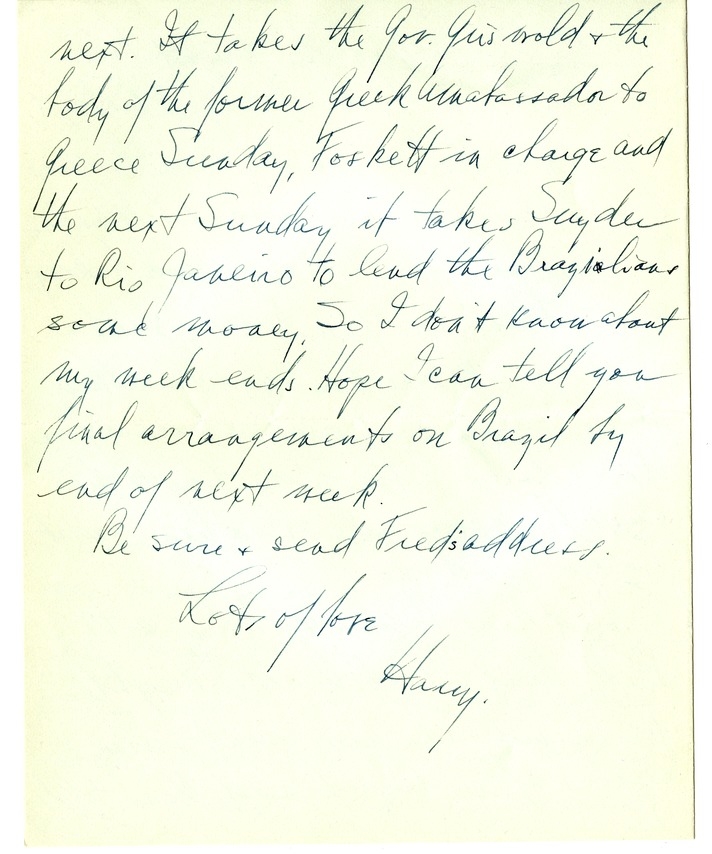 next. It takes the Gov. Griswold & the
body of the former Greek Ambassador to
Greece Sunday, Foskett in charge and
the next Sunday it takes Snyder
to Rio Janeiro to lend the Brazilians
some money. So I don't know about
my week ends. Hope I can tell you
final arrangements on Brazil by
end of next week.
Be sure & send Fred's address.
Lots of love
Harry.